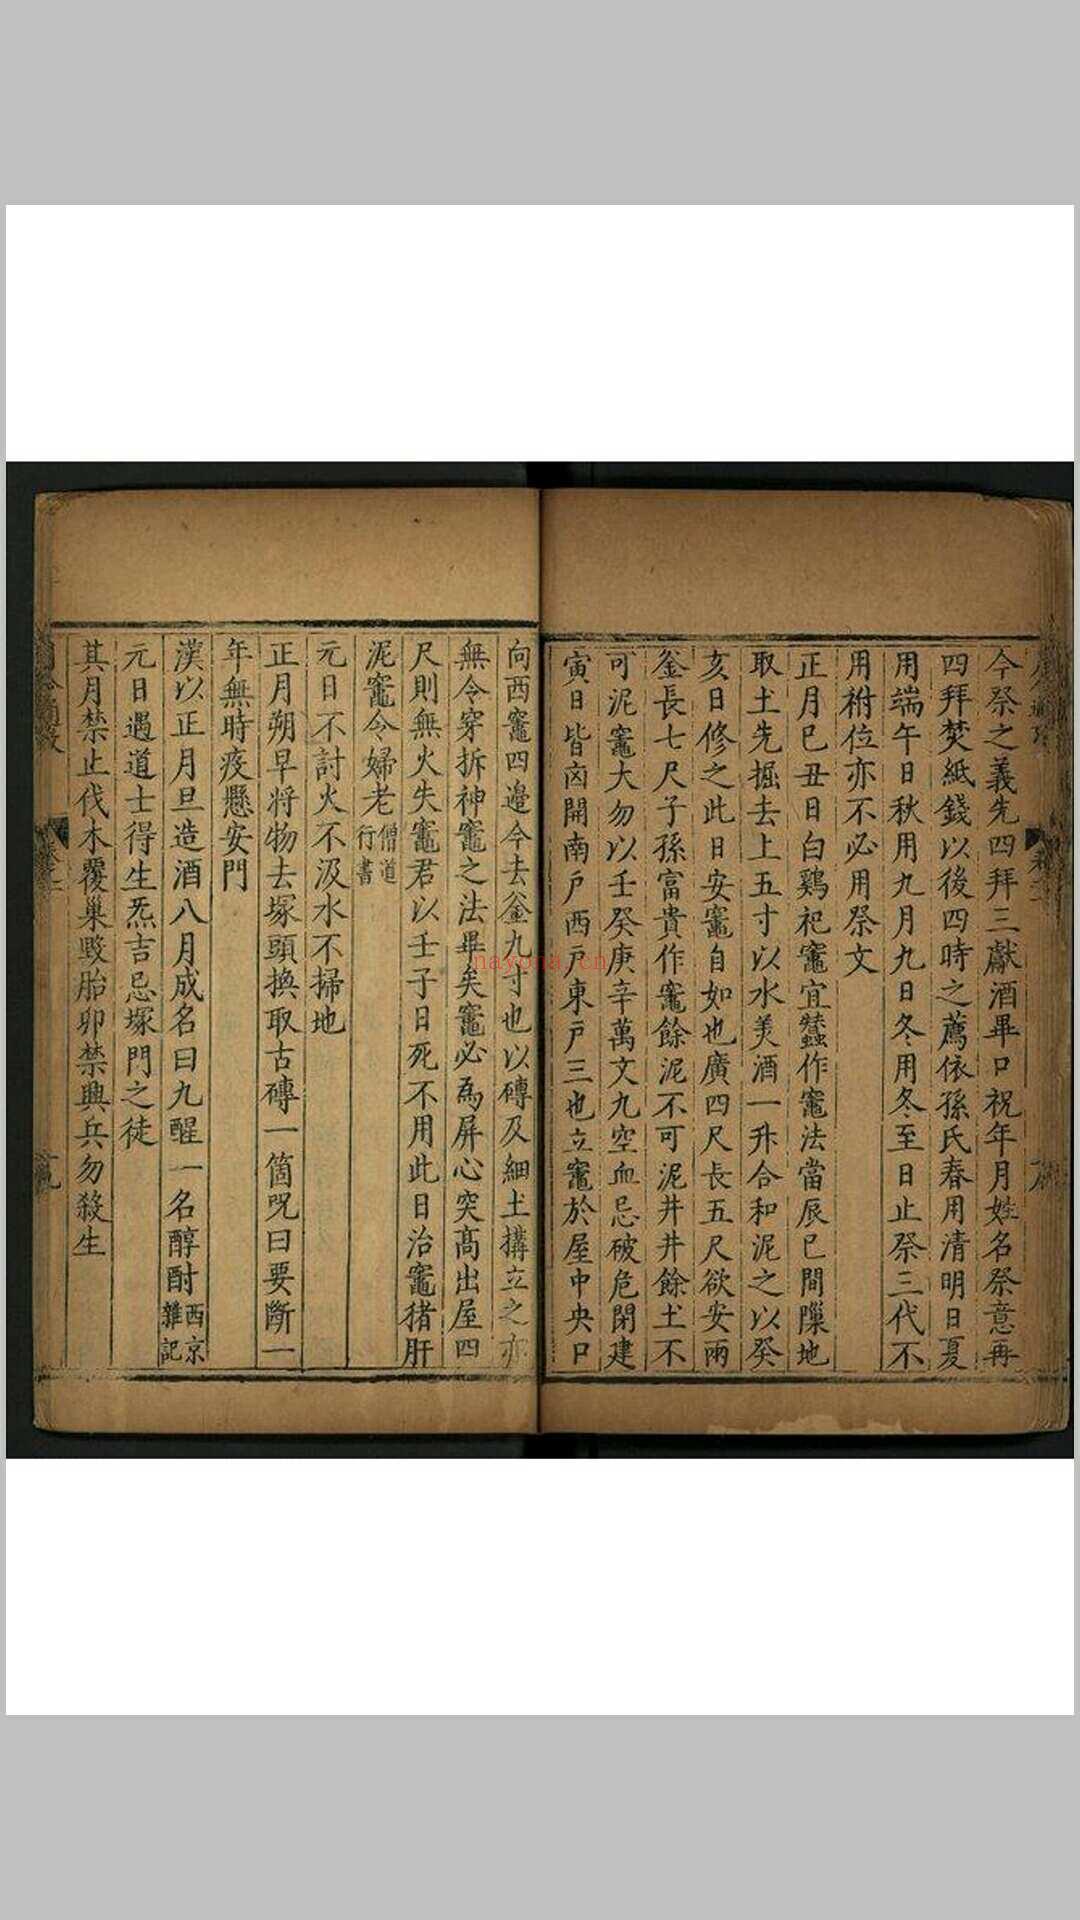 今祭之義先四拜三獻酒畢口祝年月姓名祭意再
四拜焚紙錢以後四時之薦依孫氏春用清明日夏
用端午日秋用九月九日冬用冬至日止祭三代不
用祔位亦不必用祭文
正月巳丑日白鷄祀竈宜蠶作竈法當辰巳間隟地
取土先掘去上五寸以水美酒一升合和泥之以癸
亥日修之此日安竈自如也廣四尺長五尺欲安兩
釜長七尺子孫富貴作竈餘泥不可泥井井餘土不
可泥竈大勿以壬癸庚辛萬文九空血忌破危閉建
寅日皆凶開南戶西戶東戶三也立竈於屋中央口
向西竈四邉令去釜九寸也以磚及細土搆立之亦
無令穿拆神竈之法畢矣竈必為屏心突髙出屋四
尺則無火失竈君以壬子日死不用此日治竈猪肝
泥竈令婦老僧道行書
元日不討火不汲水不掃地
正月朔早将物去塚頭換取古磚一箇咒曰要斷一
年無時疫懸安門
漢以正月旦造酒八月成名曰九醒一名醇酎西京雜記
元日遇道士得生炁吉忌塚門之徒
其月禁止伐木覆巢毀胎卵禁興兵勿殺生
nayona.cn